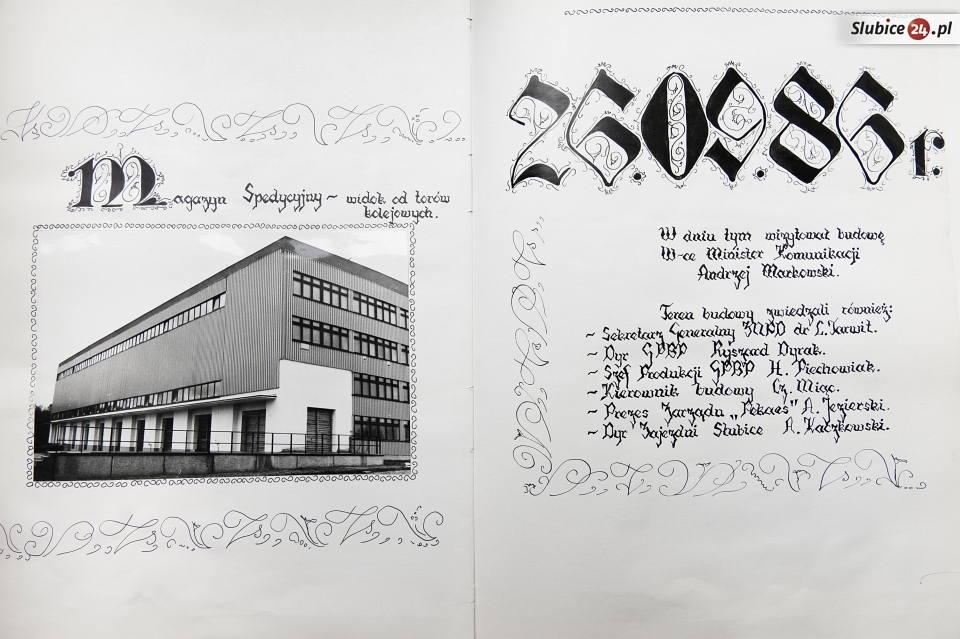 Slubice24.pl
Magazyn Spedycyjny ~ widok od torów
kolejowych.
26.09.86r.
W dniu tym wizytował budowę
W-ce Minister Komunikacji
Andrzej Markowski.
Teren budowy zwiedzali również:
~ Sekretarz Generalny ZMPD dr L. Tarwit.
~ Dyr GPBP Ryszard Dyrak.
~ Szef Produkcji GPBP H. Piechowiak.
~ Kierownik budowy Cz. Miąc.
~ Prezes Zarządu „Pekaes" A. Jezierski.
~ Dyr Zajezdni Słubice A. Kaczkowski.